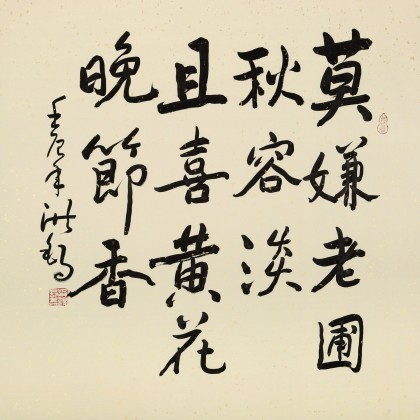 莫嫌老圃
秋容淡
且喜黄花
晚節香
壬辰年